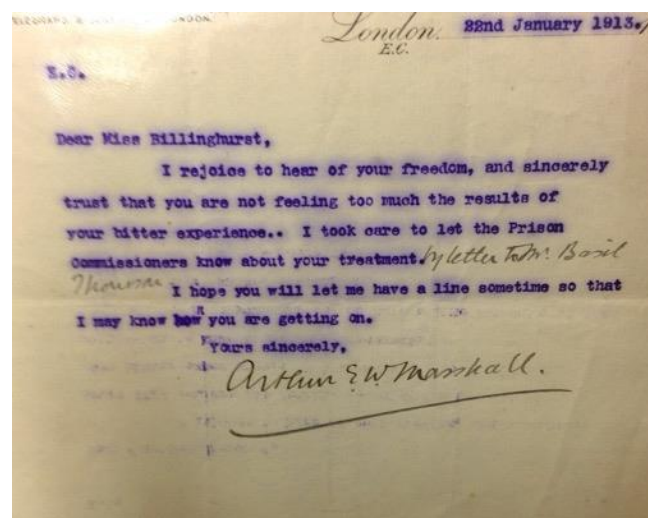 London. 22nd January 1913.
E.C.
E.C.
Dear Miss Billinghurst,
I rejoice to hear of your freedom, and sincerely
trust that you are not feeling too much the results of
your bitter experience.. I took care to let the Prison
Commissioners know about your treatment. by letter to Mr. Basil
Thomson I hope you will let me have a line sometime so that
I may know how you are getting on.
Yours sincerely,
Arthur E. W. Marshall.